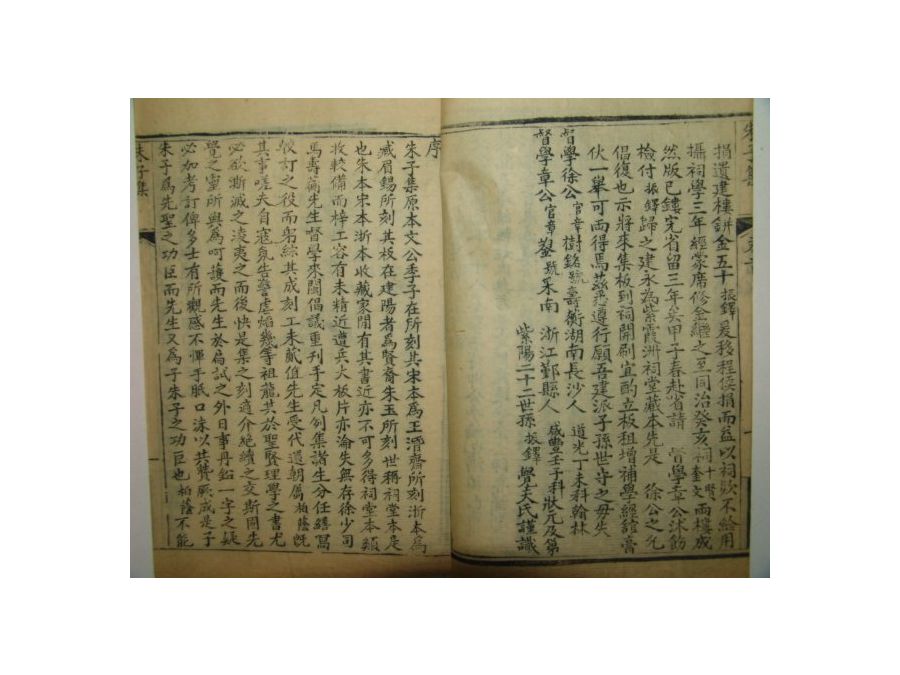 朱子集
捐遺建樓餅金五十振鐸爰移程侯捐而益以祠欵不給用
攝祠學三年經蒙席修金繼之至同治癸亥祠奎文兩樓成
然版已鏤完省留三年矣甲子春赴省請 督學章公沭飭
檢付振鐸歸之建永為紫霞洲祠堂藏本先是 徐公之允
倡復也示將來集板到祠開刷宜酌立板租增補學經鐘膏
伙一舉可而得焉茲遵行願吾建派子孫世守之毋失
督學徐公官章樹銘號壽衡湖南長沙人 道光丁未科翰林
督學章公官章鋆號采南 浙江鄞縣人 咸豐壬子科狀元及第
紫陽二十二世孫 振鐸 覺夫氏謹識
序
朱子集原本文公季子在所刻其宋本為王潛齋所刻浙本為
臧眉錫所刻其板在建陽者為賢裔朱玉所刻世稱祠堂本是
也朱本宋本浙本收藏家間有其書近亦不可多得祠堂本頗
收較備而梓工容有未精近遭兵火板片亦淪失無存徐少司
馬壽蘅先生督學來閩倡議重刊手定凡例集諸生分任繕寫
校訂之役而躬綜其成刻工未蕆值先生受代還朝屬柏蔭既
其事嗟夫自寇氛告警虐焰幾等祖龍其於聖賢理學之書尤
必欲澌滅之淩夷之而後快是集之刻適介絕續之交斯閣先
覺之靈所與為呵護而先生於扃試之外日事丹鉛一字之疑
必加考訂俾多士有所觀感不憚手胝口沫以共贊厥成是子
朱子為先聖之功臣而先生又為子朱子之功臣也柏蔭不能
朱子集